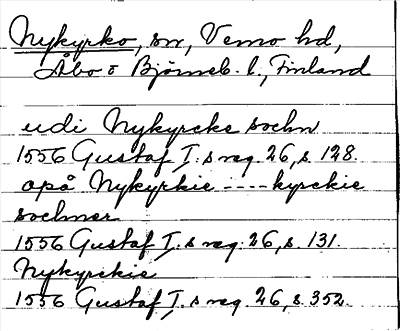 Nykyrko, sn, Vemo hd,
Åbo o Björneb. l., Finland
udi Nykyrcke sochn
1556 Gustaf I. s reg. 26, s. 128.
opå Nykyrkie ---- kyrckie
sochner
1556 Gustaf I. s reg. 26, s. 131.
Nykyrckie
1556 Gustaf I. s reg. 26, s. 352.